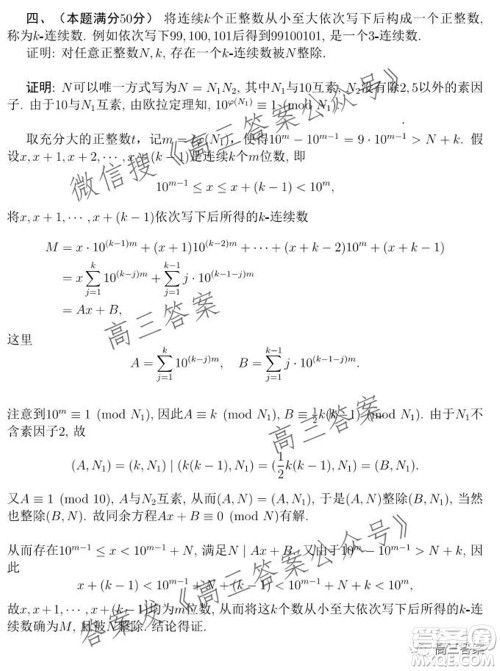 四、(本题满分50分) 将连续k个正整数从小至大依次写下后构成一个正整数,
称为k-连续数. 例如依次写下99, 100, 101后得到99100101, 是一个3-连续数.
证明: 对任意正整数N, k, 存在一个k-连续数被N整除.
证明: N可以唯一方式写为N = N₁N₂, 其中N₁与10互素, N₂没有除2, 5以外的素因
子. 由于10与N₁互素, 由欧拉定理知, 10^{φ(N₁)} ≡ 1 (mod N₁)
取充分大的正整数t, 记m = (N₁), 使得10^m − 10^{m−1} = 9 · 10^{m−1} > N + k. 假
设x, x + 1, x + 2, ⋯, x + (k − 1)是连续k个m位数, 即
10^{m−1} ≤ x ≤ x + (k − 1) < 10^m,
将x, x + 1, ⋯, x + (k − 1)依次写下后所得的k-连续数
M = x · 10^{(k−1)m} + (x + 1)10^{(k−2)m} + ⋯ + (x + k − 2)10^m + (x + k − 1)
= x∑_{j=1}^{k} 10^{(k−j)m} + ∑_{j=1}^{k−1} j · 10^{(k−1−j)m}
= Ax + B,
这里
A = ∑_{j=1}^{k} 10^{(k−j)m}, B = ∑_{j=1}^{k−1} j · 10^{(k−1−j)m}.
注意到10^m ≡ 1 (mod N₁), 因此A ≡ k (mod N₁), B ≡ ½k(k − 1) (mod N₁). 由于N₁不
含素因子2, 故
(A, N₁) = (k, N₁) | (k(k − 1), N₁) = (½k(k − 1), N₁) = (B, N₁).
又A ≡ 1 (mod 10), A与N₂互素, 从而(A, N) = (A, N₁), 于是(A, N)整除(B, N₁), 当然
也整除(B, N). 故同余方程Ax + B ≡ 0 (mod N)有解.
从而存在10^{m−1} ≤ x < 10^{m−1} + N, 满足N | Ax + B. 又由于10^m − 10^{m−1} > N + k, 因
此
x + (k − 1) < 10^{m−1} + N + (k − 1) < 10^{m−1} + N + k < 10^m,
故x, x + 1, ⋯, x + (k − 1)均为m位数, 从而将这k个数从小至大依次写下后所得的k-连
续数确为M, 且被N整除. 结论得证.
微信搜《高三答案公众号》
高三答案
高三答案
答案来《高三答案公众号》
高三答案